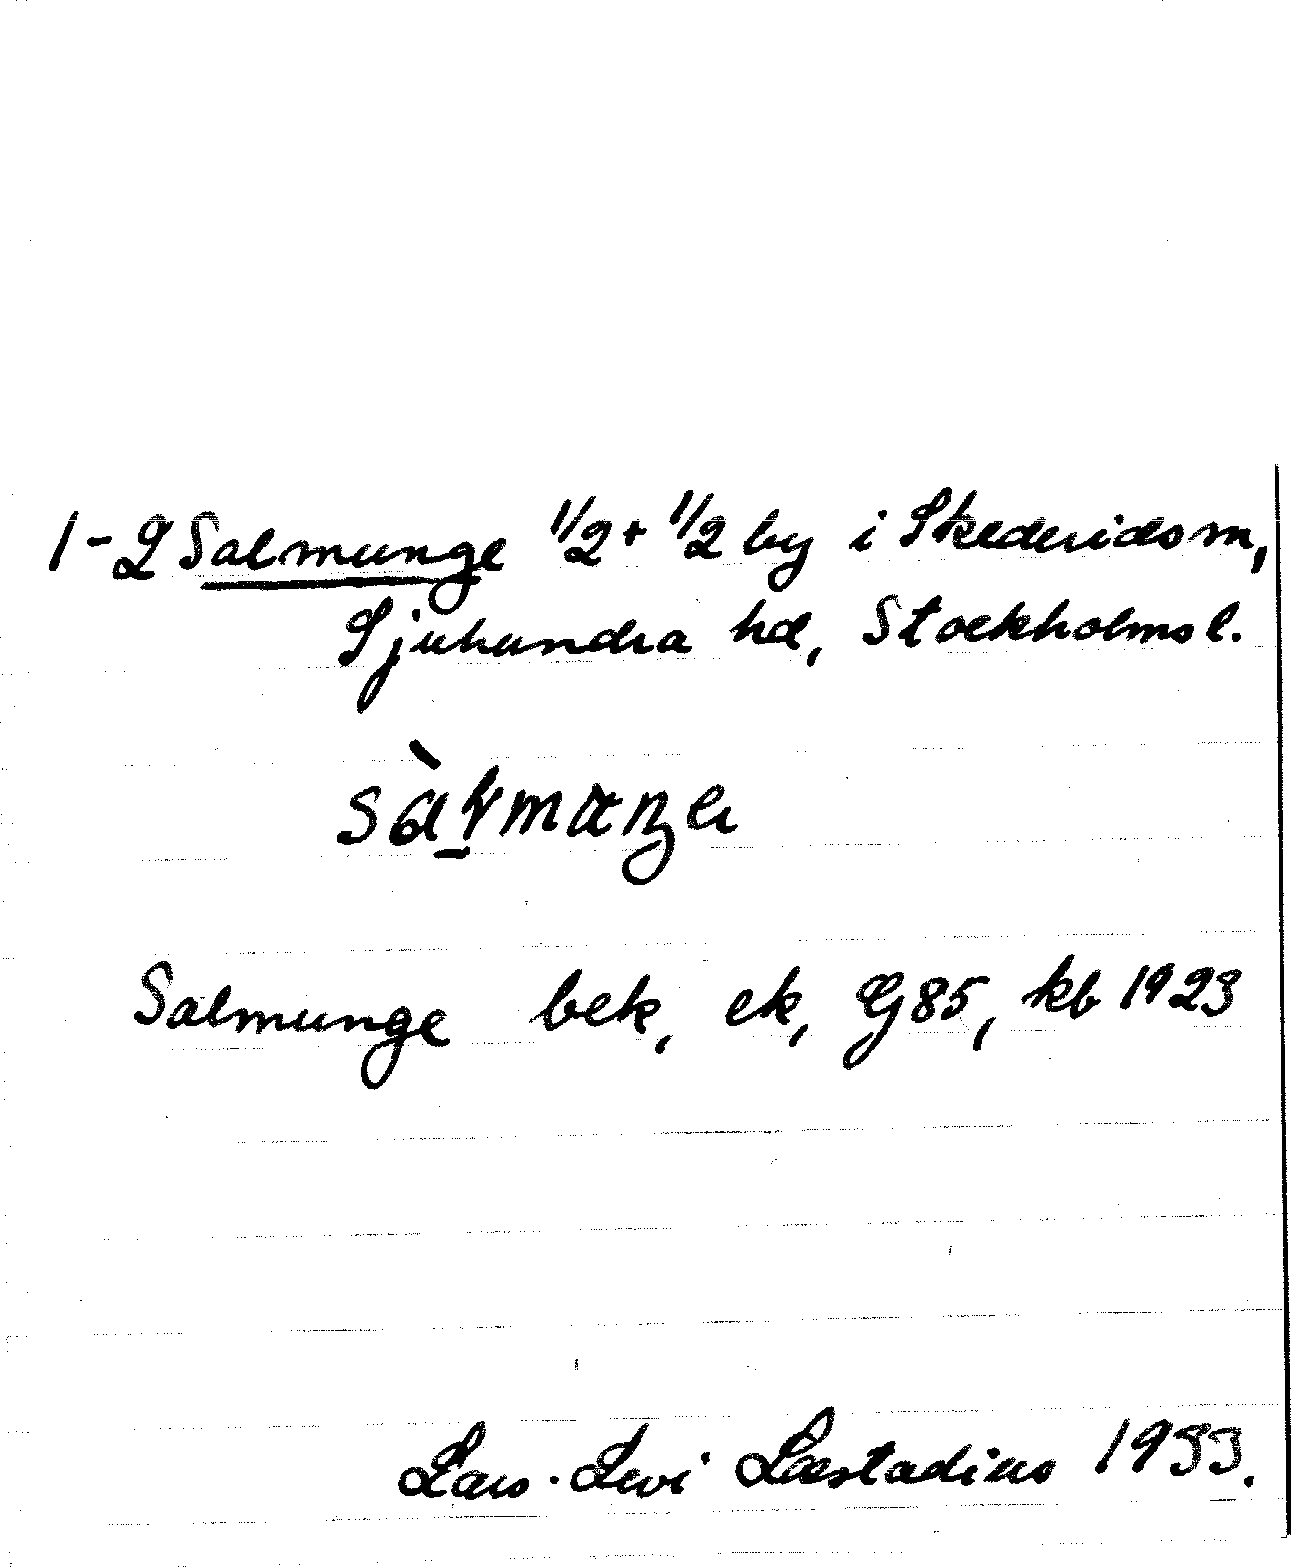 1-2 Salmunge 1/2 + 1/2 by i Skederids sn,
Sjuhundra hd, Stockholms l.
Salmunge bek, ek, GJ85, kb 1923
Lars-Levi Læstadius 1933.